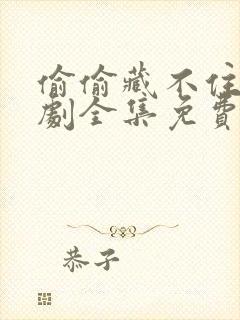 偷偷藏不住
劇全集免費
恭子